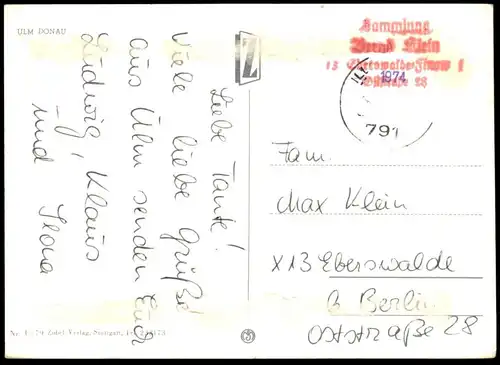 ULM DONAU
Liebe Tante!
Viele liebe Grüße
aus Ulm senden Euch
Ludwig, Klaus
und Ilona
Z
Sammlung
Bernd Klein
13 Eberswalde-Finow 1
Oststraße 28
1974
791
Fam.
Max Klein
X13 Eberswalde
b. Berlin
Oststraße 28
Zobel Verlag, Stuttgart,